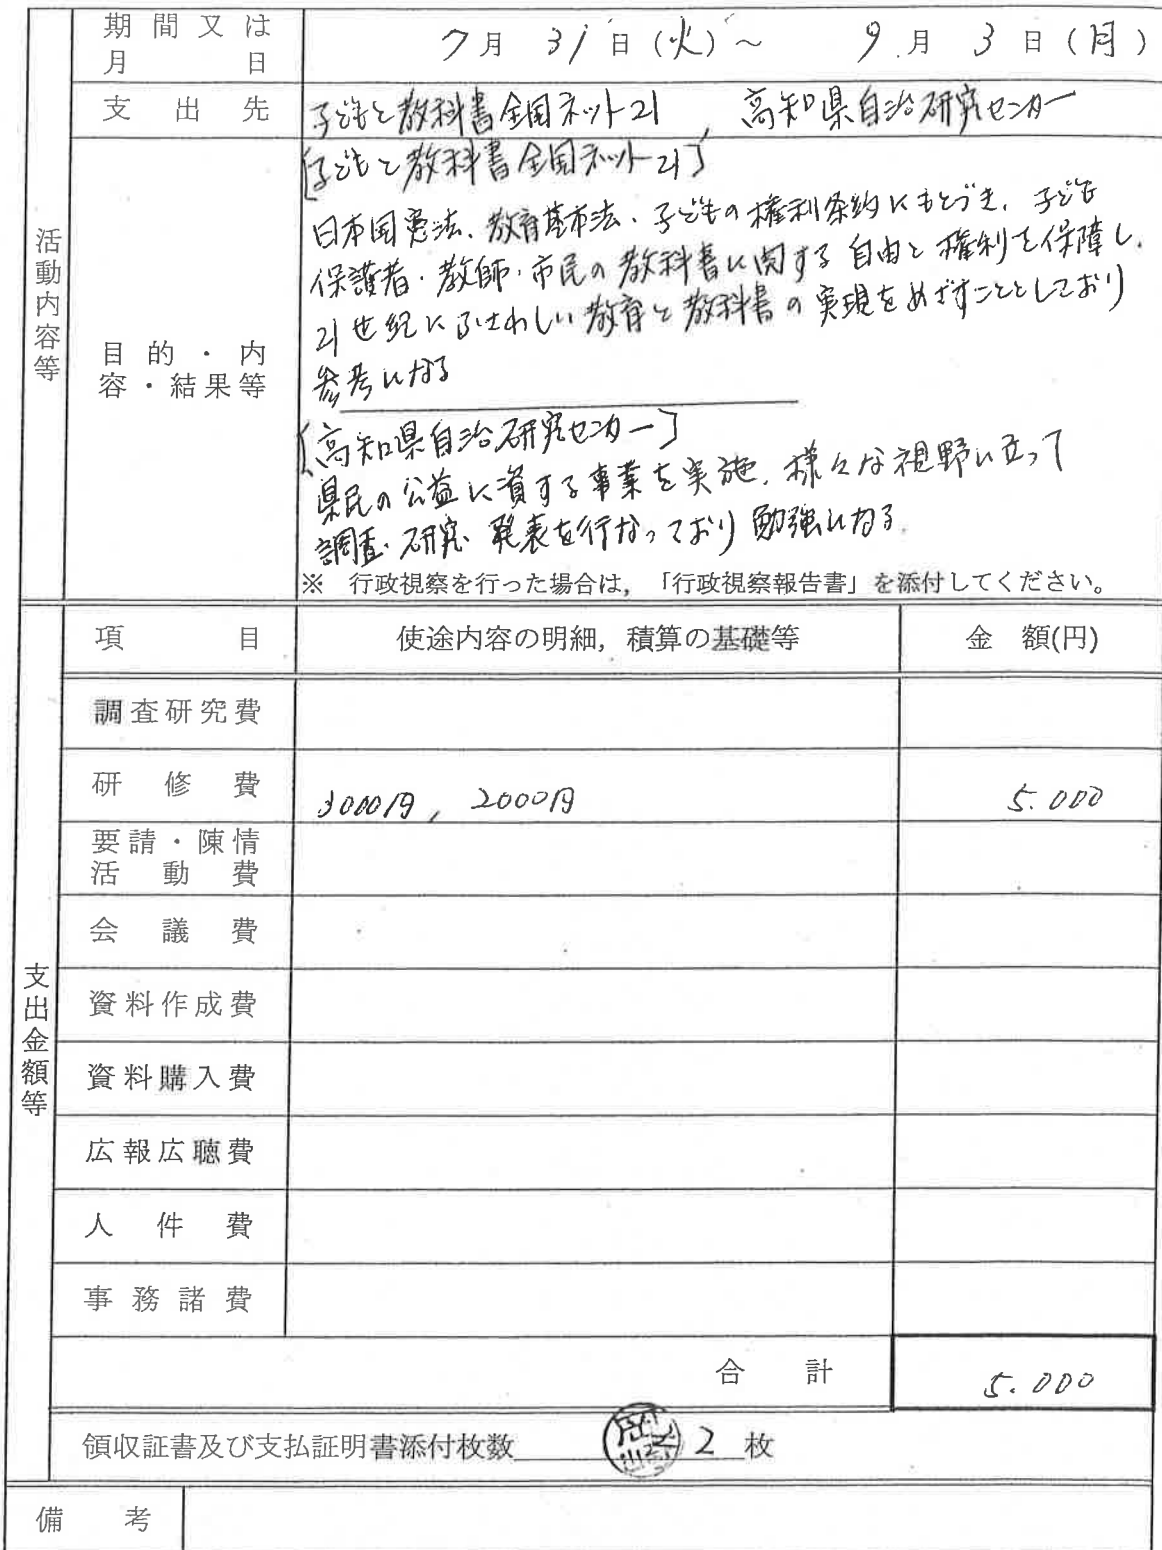 活動内容等
期間又は
月日
7月 31日(火)~ 9月 3日(月)
支出先
子どもと教科書全国ネット21, 高知県自治研究センター
目的・内
容・結果等
[子どもと教科書全国ネット21]
日本国憲法、教育基本法・子どもの権利条約にもとづき、子ども
保護者・教師・市民の教科書に関する自由と権利を保障し、
21世紀にふさわしい教育と教科書の実現をめざすこととしており
参考になる
[高知県自治研究センター]
県民の公益に資する事業を実施、様々な視野に立って
調査・研究・発表を行なっており勉強になる
※ 行政視察を行った場合は,「行政視察報告書」を添付してください。
支出金額等
項目 使途内容の明細,積算の基礎等 金額(円)
調査研究費
研修費 3000円, 2000円 5.000
要請・陳情
活動費
会議費
資料作成費
資料購入費
広報広聴費
人件費
事務諸費
合計 5.000
領収証書及び支払証明書添付枚数 2 枚
備考